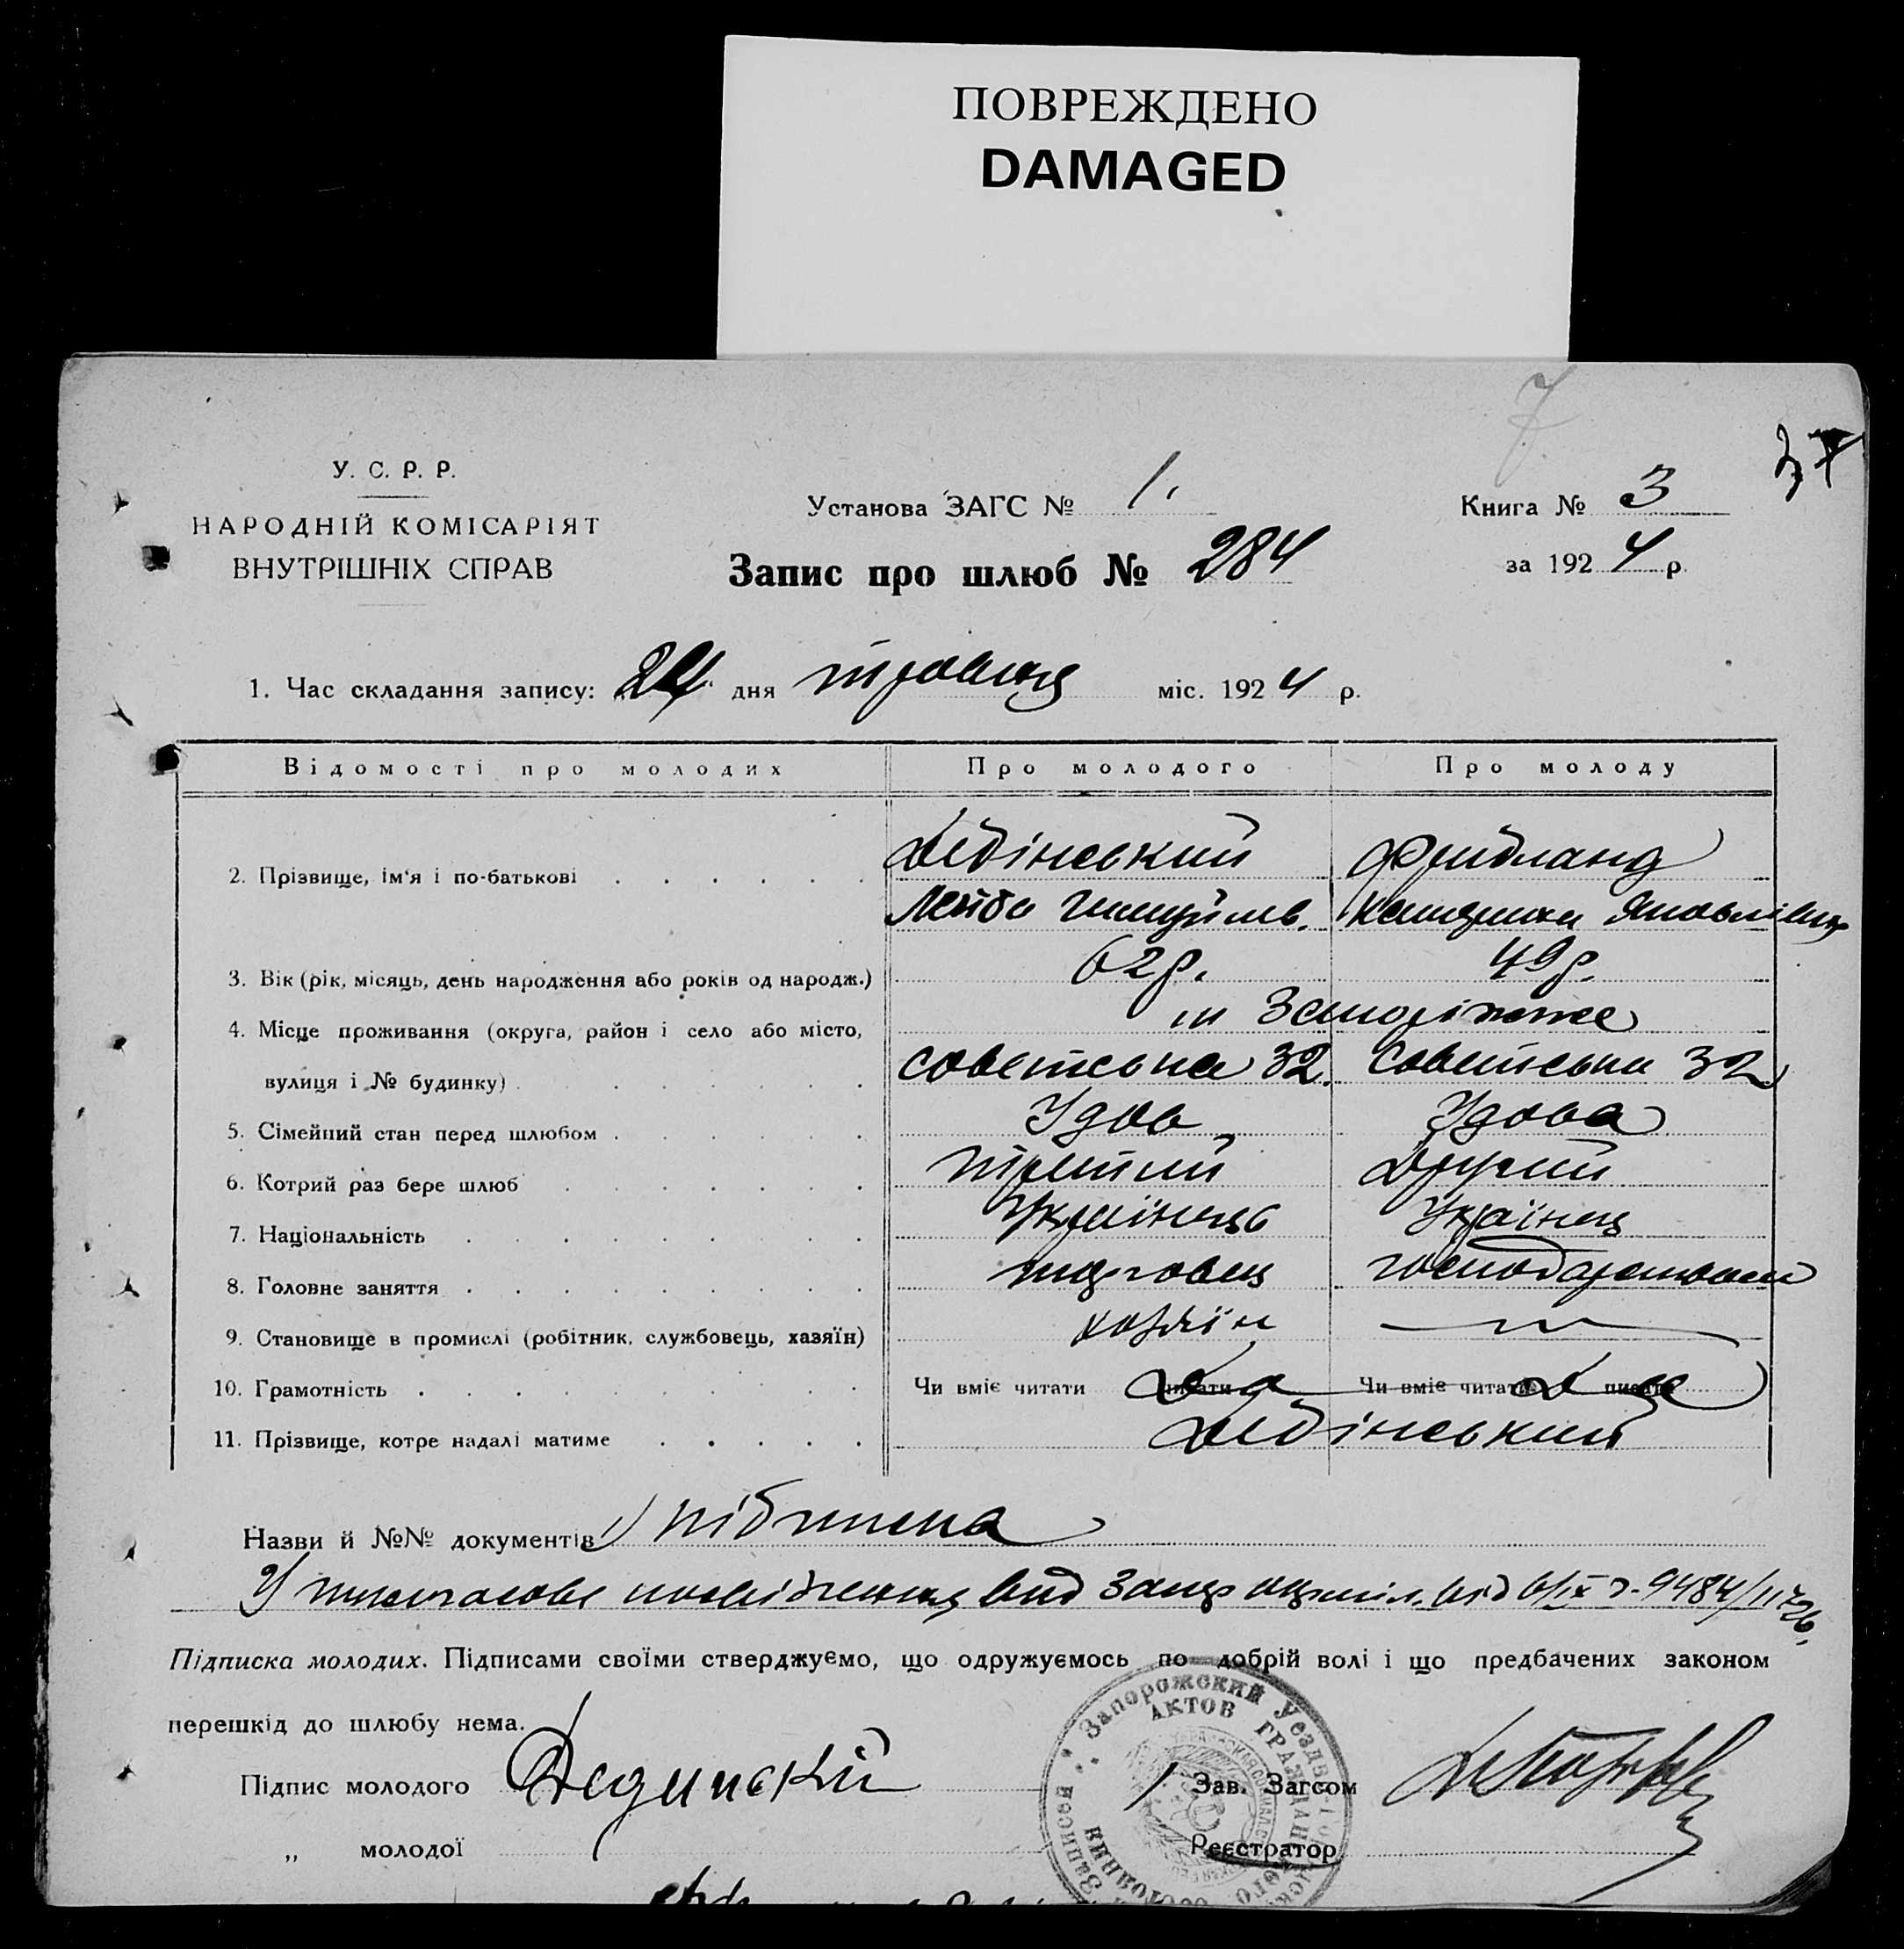 ПОВРЕЖДЕНО
DAMAGED
7
37
У. С. Р. Р.
НАРОДНІЙ КОМІСАРІЯТ
ВНУТРІШНІХ СПРАВ
Установа ЗАГС № 1.
Книга № 3
Запис про шлюб № 284
за 1924 р.
1. Час складання запису: 24 дня травня міс. 1924 р.
Відомості про молодих Про молодого Про молоду
2. Прізвище, ім'я і по-батькові Дедінський Фридланд
Лейба Яковлівна
3. Вік (рік, місяць, день народження або років од народж.) 62 р. 49 р.
4. Місце проживання (округа, район і село або місто, м Запоріжжє
вулиця і № будинку) Советська 32. Советська 32
5. Сімейний стан перед шлюбом Удов Удова
6. Котрий раз бере шлюб третий Другий
7. Національність Українець Українец
8. Головне заняття торговец господарством
9. Становище в промислі (робітник, службовець, хазяїн) хозяїн —
10. Грамотність Чи вміє читати писати Да Чи вміє читати писати Да
11. Прізвище, котре надалі матиме Дедінський
Назви й №№ документів 1) підписка
2) посвідчення від 9484/11726.
Підписка молодих. Підписами своїми стверджуємо, що одружуємось по добрій волі і що предбачених законом
перешкід до шлюбу нема.
Підпис молодого Дединский Зав. Загсом
„ молодої Реєстратор
Запорожский Уезд
АКТОВ ГРАЖДАН
Записей
состояния